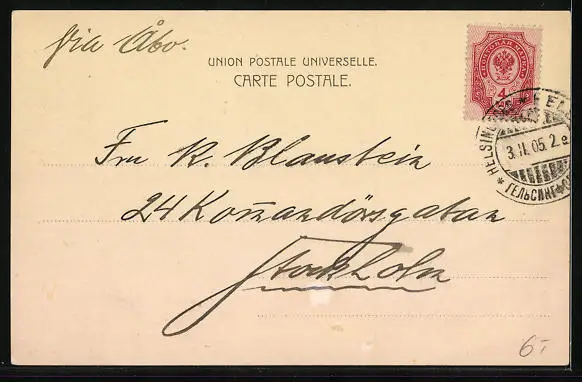 via Åbo.
UNION POSTALE UNIVERSELLE.
CARTE POSTALE.
ПОЧТОВАЯ МАРКА
4
HELSING
3.II.05.2.
ГЕЛЬСИНГ
Fru R. Blaustein
24 Kommandörsgatan
Stockholm
6-